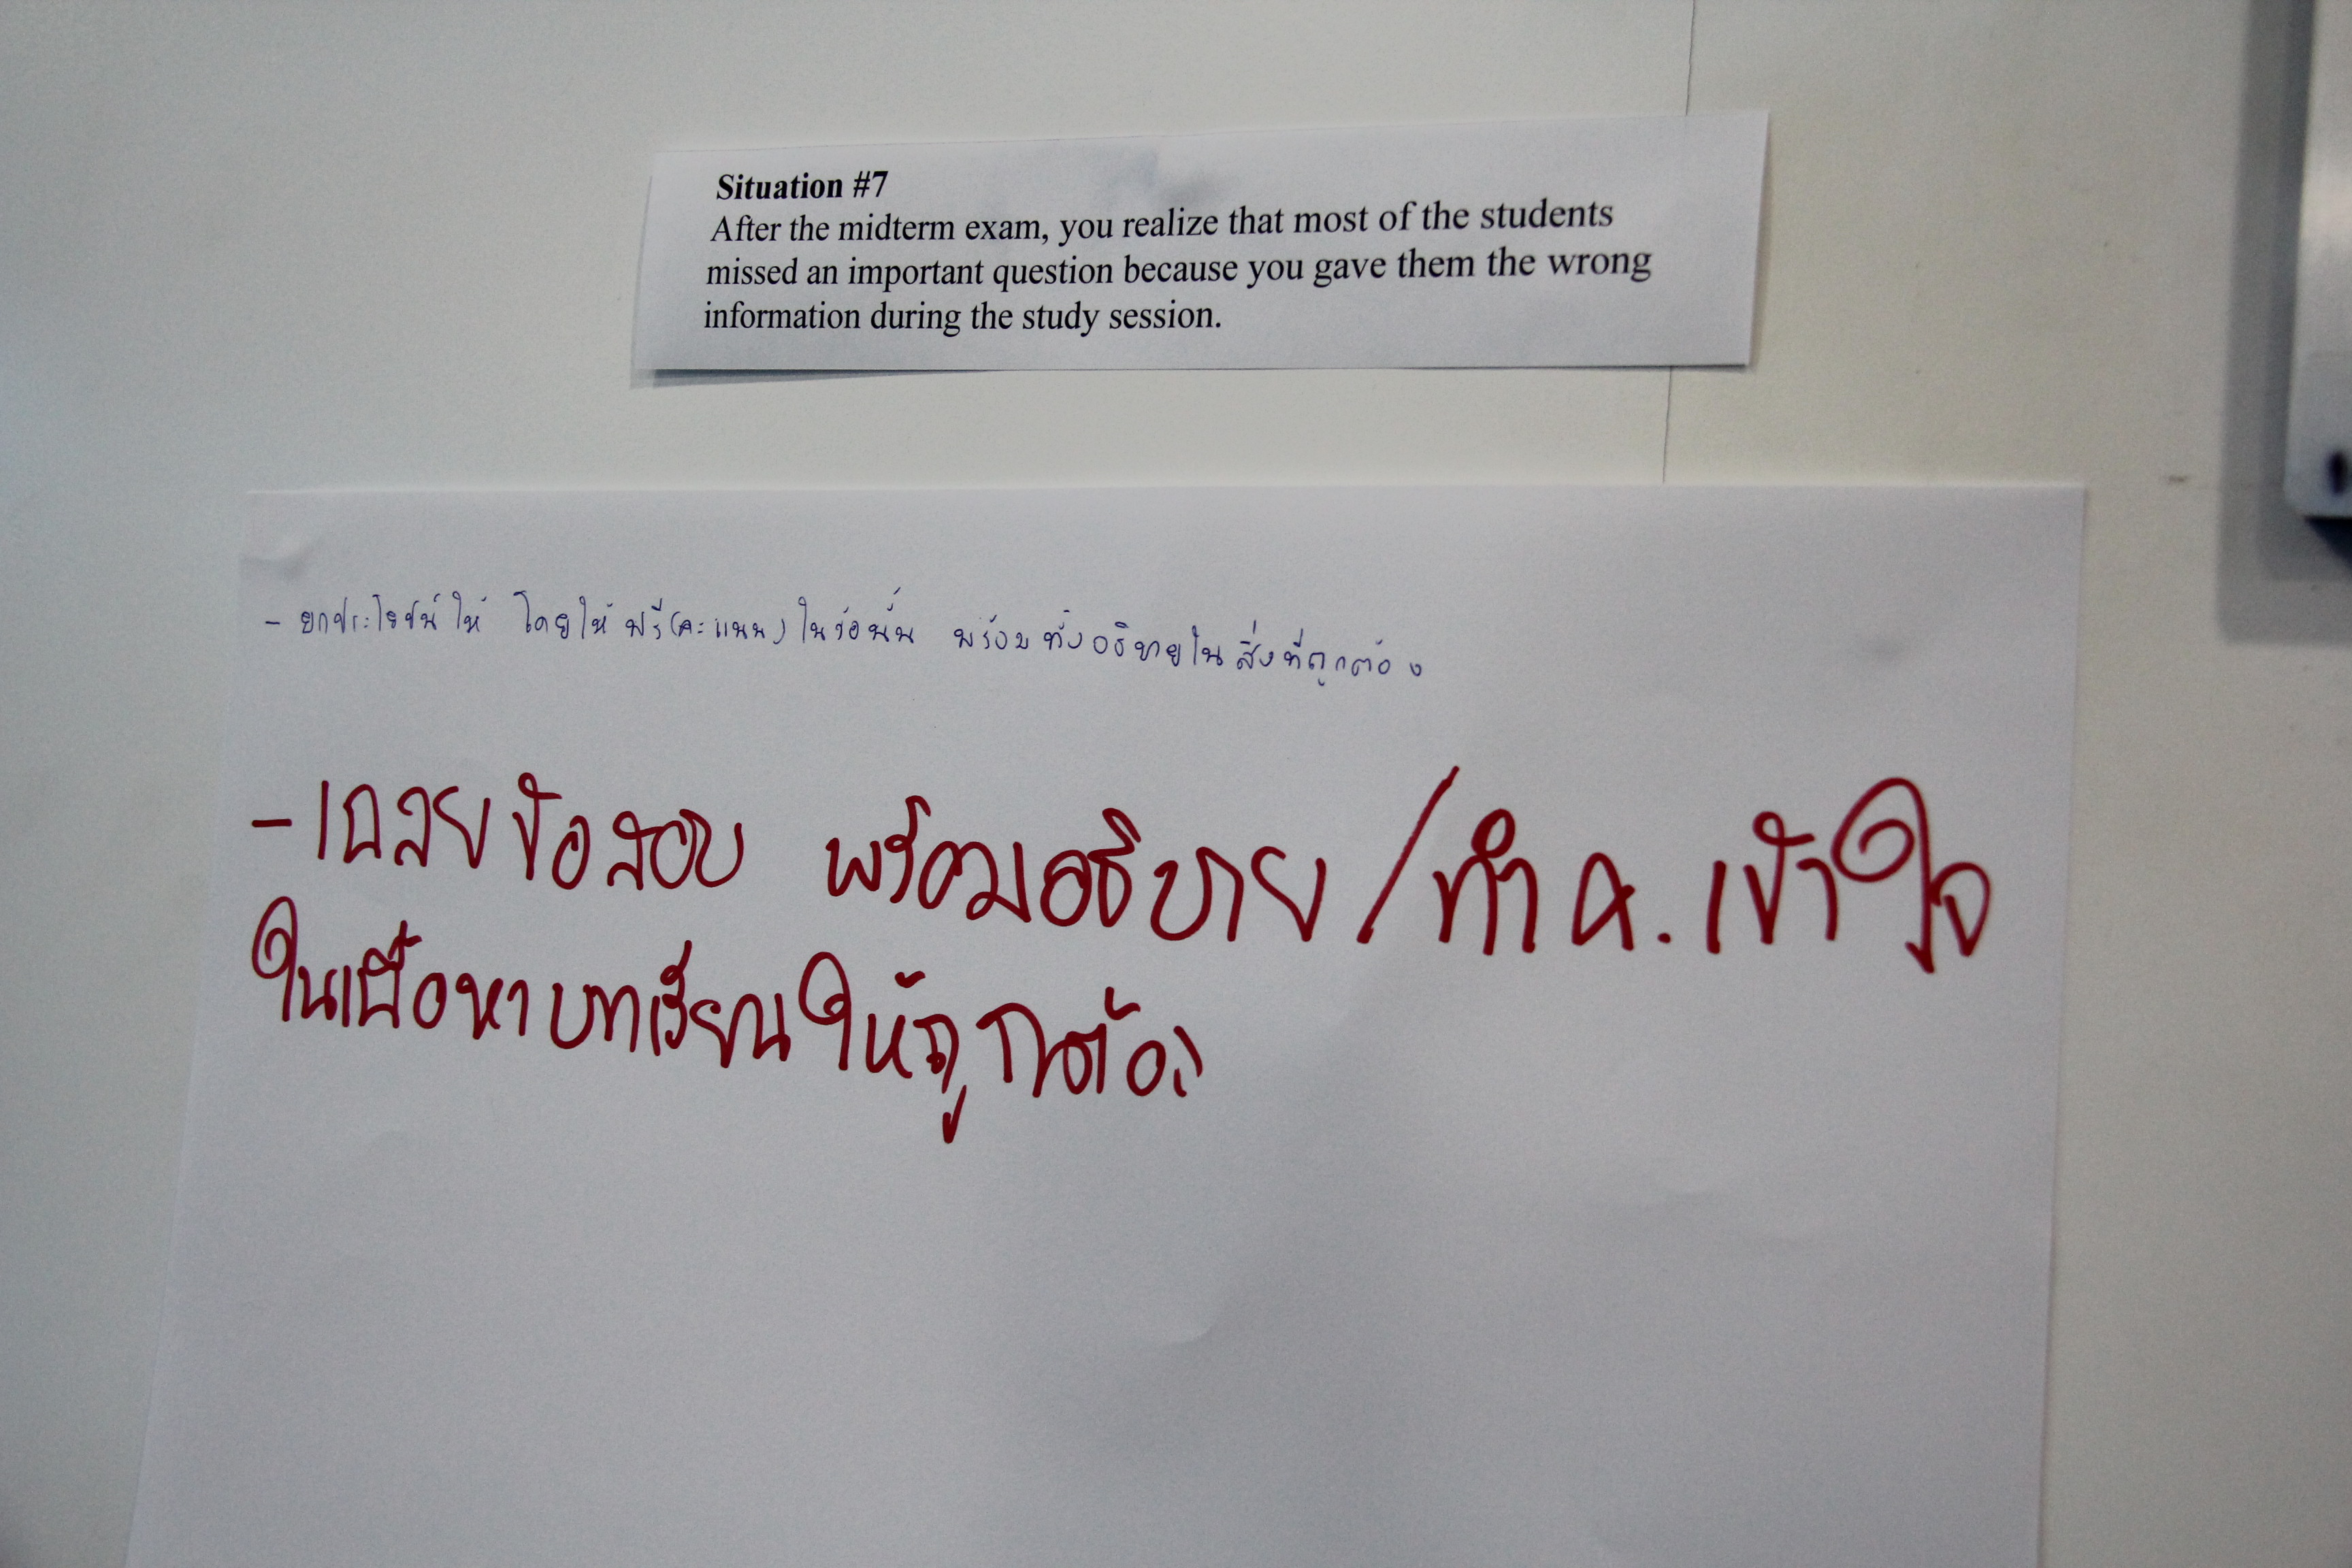 Situation #7
After the midterm exam, you realize that most of the students
missed an important question because you gave them the wrong
information during the study session.
- ยกประโยชน์ให้ โดยให้ฟรี(คะแนน) ในข้อนั้น พร้อมทั้งอธิบายในสิ่งที่ถูกต้อง
- เฉลยข้อสอบ พร้อมอธิบาย/ทำ ค. เข้าใจ
ในเนื้อหาบทเรียนให้ถูกต้อง